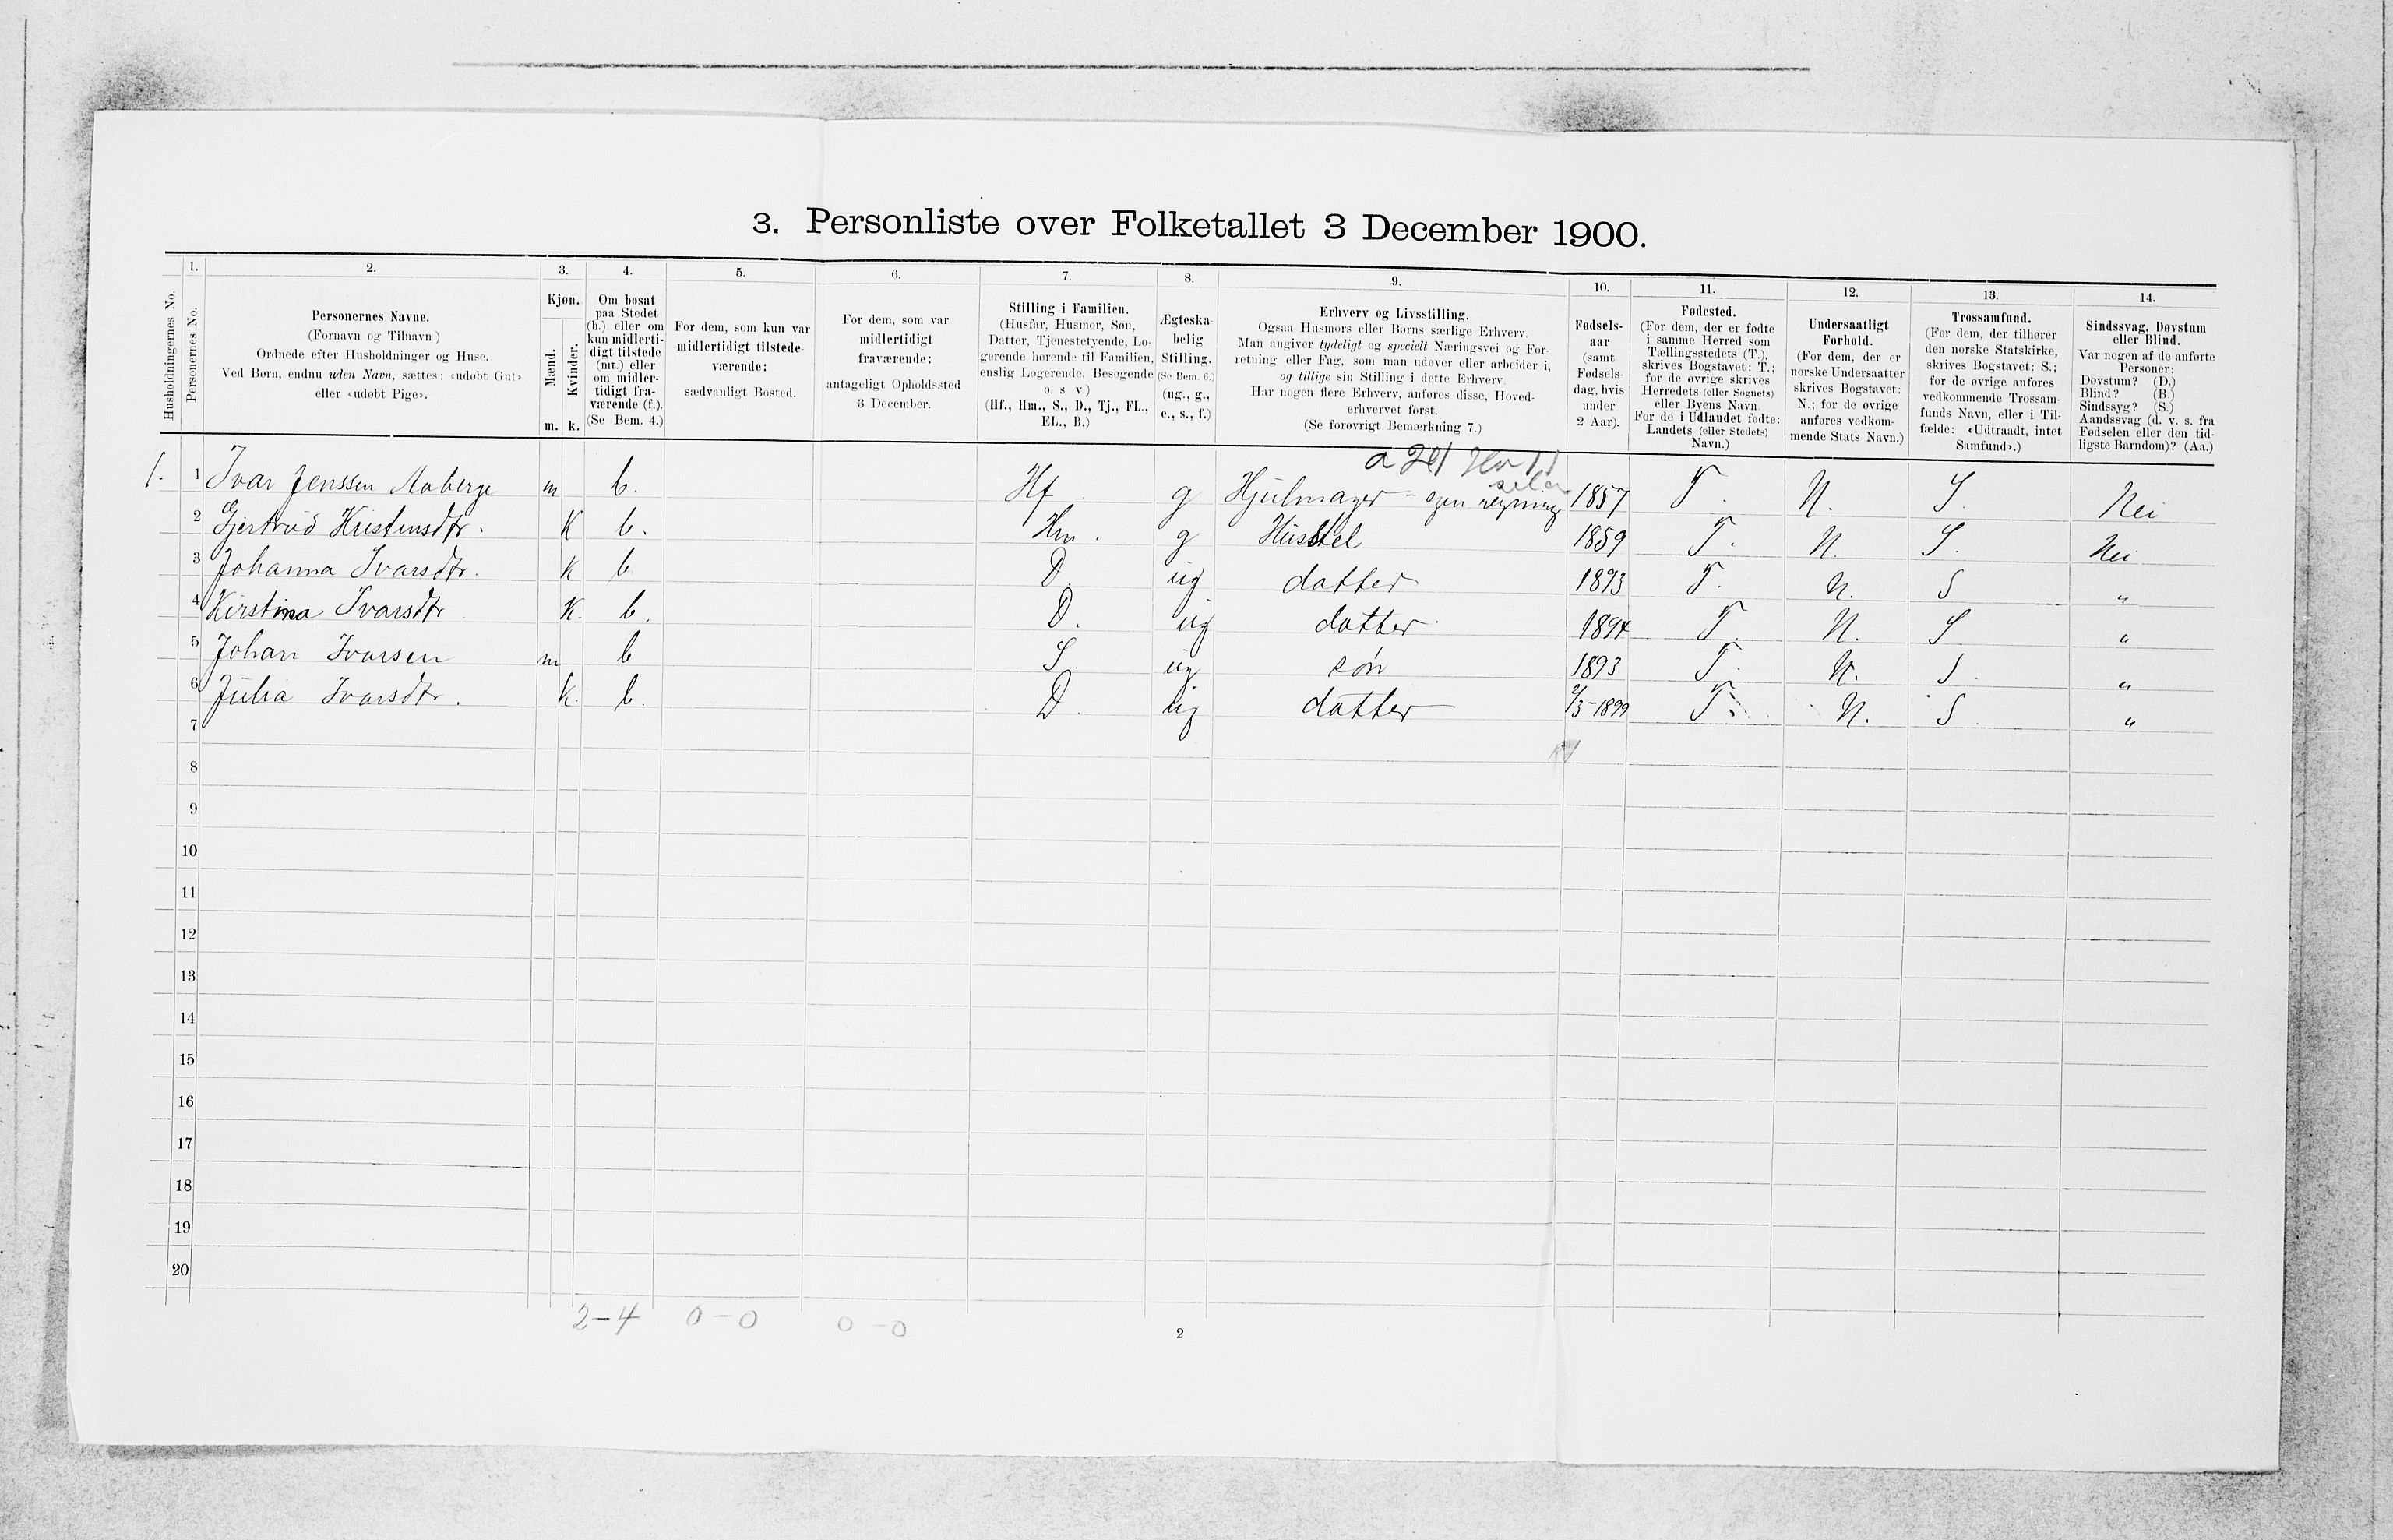 3. Personliste over Folketallet 3 December 1900.
1. 2. 3. 4. 5. 6. 7. 8. 9. 10. 11. 12. 13. 14.
Husholdningernes No.
Personernes No.
Personernes Navne.
(Fornavn og Tilnavn)
Ordnede efter Husholdninger og Huse.
Ved Børn, endnu uden Navn, sættes: «udøbt Gut»
eller «udøbt Pige».
Kjøn.
Mænd.
Kvinder.
m. k.
Om bosat
paa Stedet
(b.) eller om
kun midlerti-
digt tilstede
(mt.) eller
om midler-
tidigt fra-
værende (f.).
(Se Bem. 4.)
For dem, som kun var
midlertidigt tilstede-
værende:
sædvanligt Bosted.
For dem, som var
midlertidigt
fraværende:
antageligt Opholdssted
3 December.
Stilling i Familien.
(Husfar, Husmor, Søn,
Datter, Tjenestetyende, Lo-
gerende hørende til Familien,
enslig Logerende, Besøgende
o. s v.)
(Hf., Hm., S., D., Tj., FL.,
EL., B.)
Ægteska-
belig
Stilling.
(Se Bem. 6.)
(ug., g.,
e., s., f.)
Erhverv og Livsstilling.
Ogsaa Husmors eller Børns særlige Erhverv.
Man angiver tydeligt og specielt Næringsvei og For-
retning eller Fag, som man udover eller arbeider i,
og tillige sin Stilling i dette Erhverv.
Har nogen flere Erhverv, anføres disse, Hoved-
erhvervet først.
(Se forøvrigt Bemærkning 7.)
Fødsels-
aar
(samt
Fødsels-
dag, hvis
under
2 Aar).
Fødested.
(For dem, der er fødte
i samme Herred som
Tællingsstedets (T.),
skrives Bogstavet: T.;
for de øvrige skrives
Herredets (eller Sognets)
eller Byens Navn.
For de i Udlandet fødte:
Landets (eller Stedets)
Navn.)
Undersaatligt
Forhold.
(For dem, der er
norske Undersaatter
skrives Bogstavet:
N.; for de øvrige
anføres vedkom-
mende Stats Navn.)
Trossamfund.
(For dem, der tilhører
den norske Statskirke,
skrives Bogstavet: S.;
for de øvrige anføres
vedkommende Trossam-
funds Navn, eller i Til-
fælde: «Udtraadt, intet
Samfund».)
Sindssvag, Døvstum
eller Blind.
Var nogen af de anførte
Personer:
Døvstum? (D.)
Blind? (B.)
Sindssyg? (S.)
Aandssvag (d. v. s. fra
Fødselen eller den tid-
ligste Barndom)? (Aa.)
1. 1 Ivar Jenssen Aaberge m b. Hf. g Hjulmager - egen regning 1857 T. N. S. Nei
2 Gjertrud Kristensdtr. K b. Hm. g Husstel 1859 T. N. S. Nei
3 Johanna Ivarsdtr. K b. D. ug datter 1893 T. N. S "
4 Kirstina Ivarsdtr K. b. D. ug datter 1894 T. N. S "
5 Johan Ivarsen m b S. ug søn 1893 T. N. S. "
6 Julia Ivarsdtr. K. b. D. ug datter 2/3-1899 T. N. S "
7
8
9
10
11
12
13
14
15
16
17
18
19
20
2-4 0-0 0-0
2